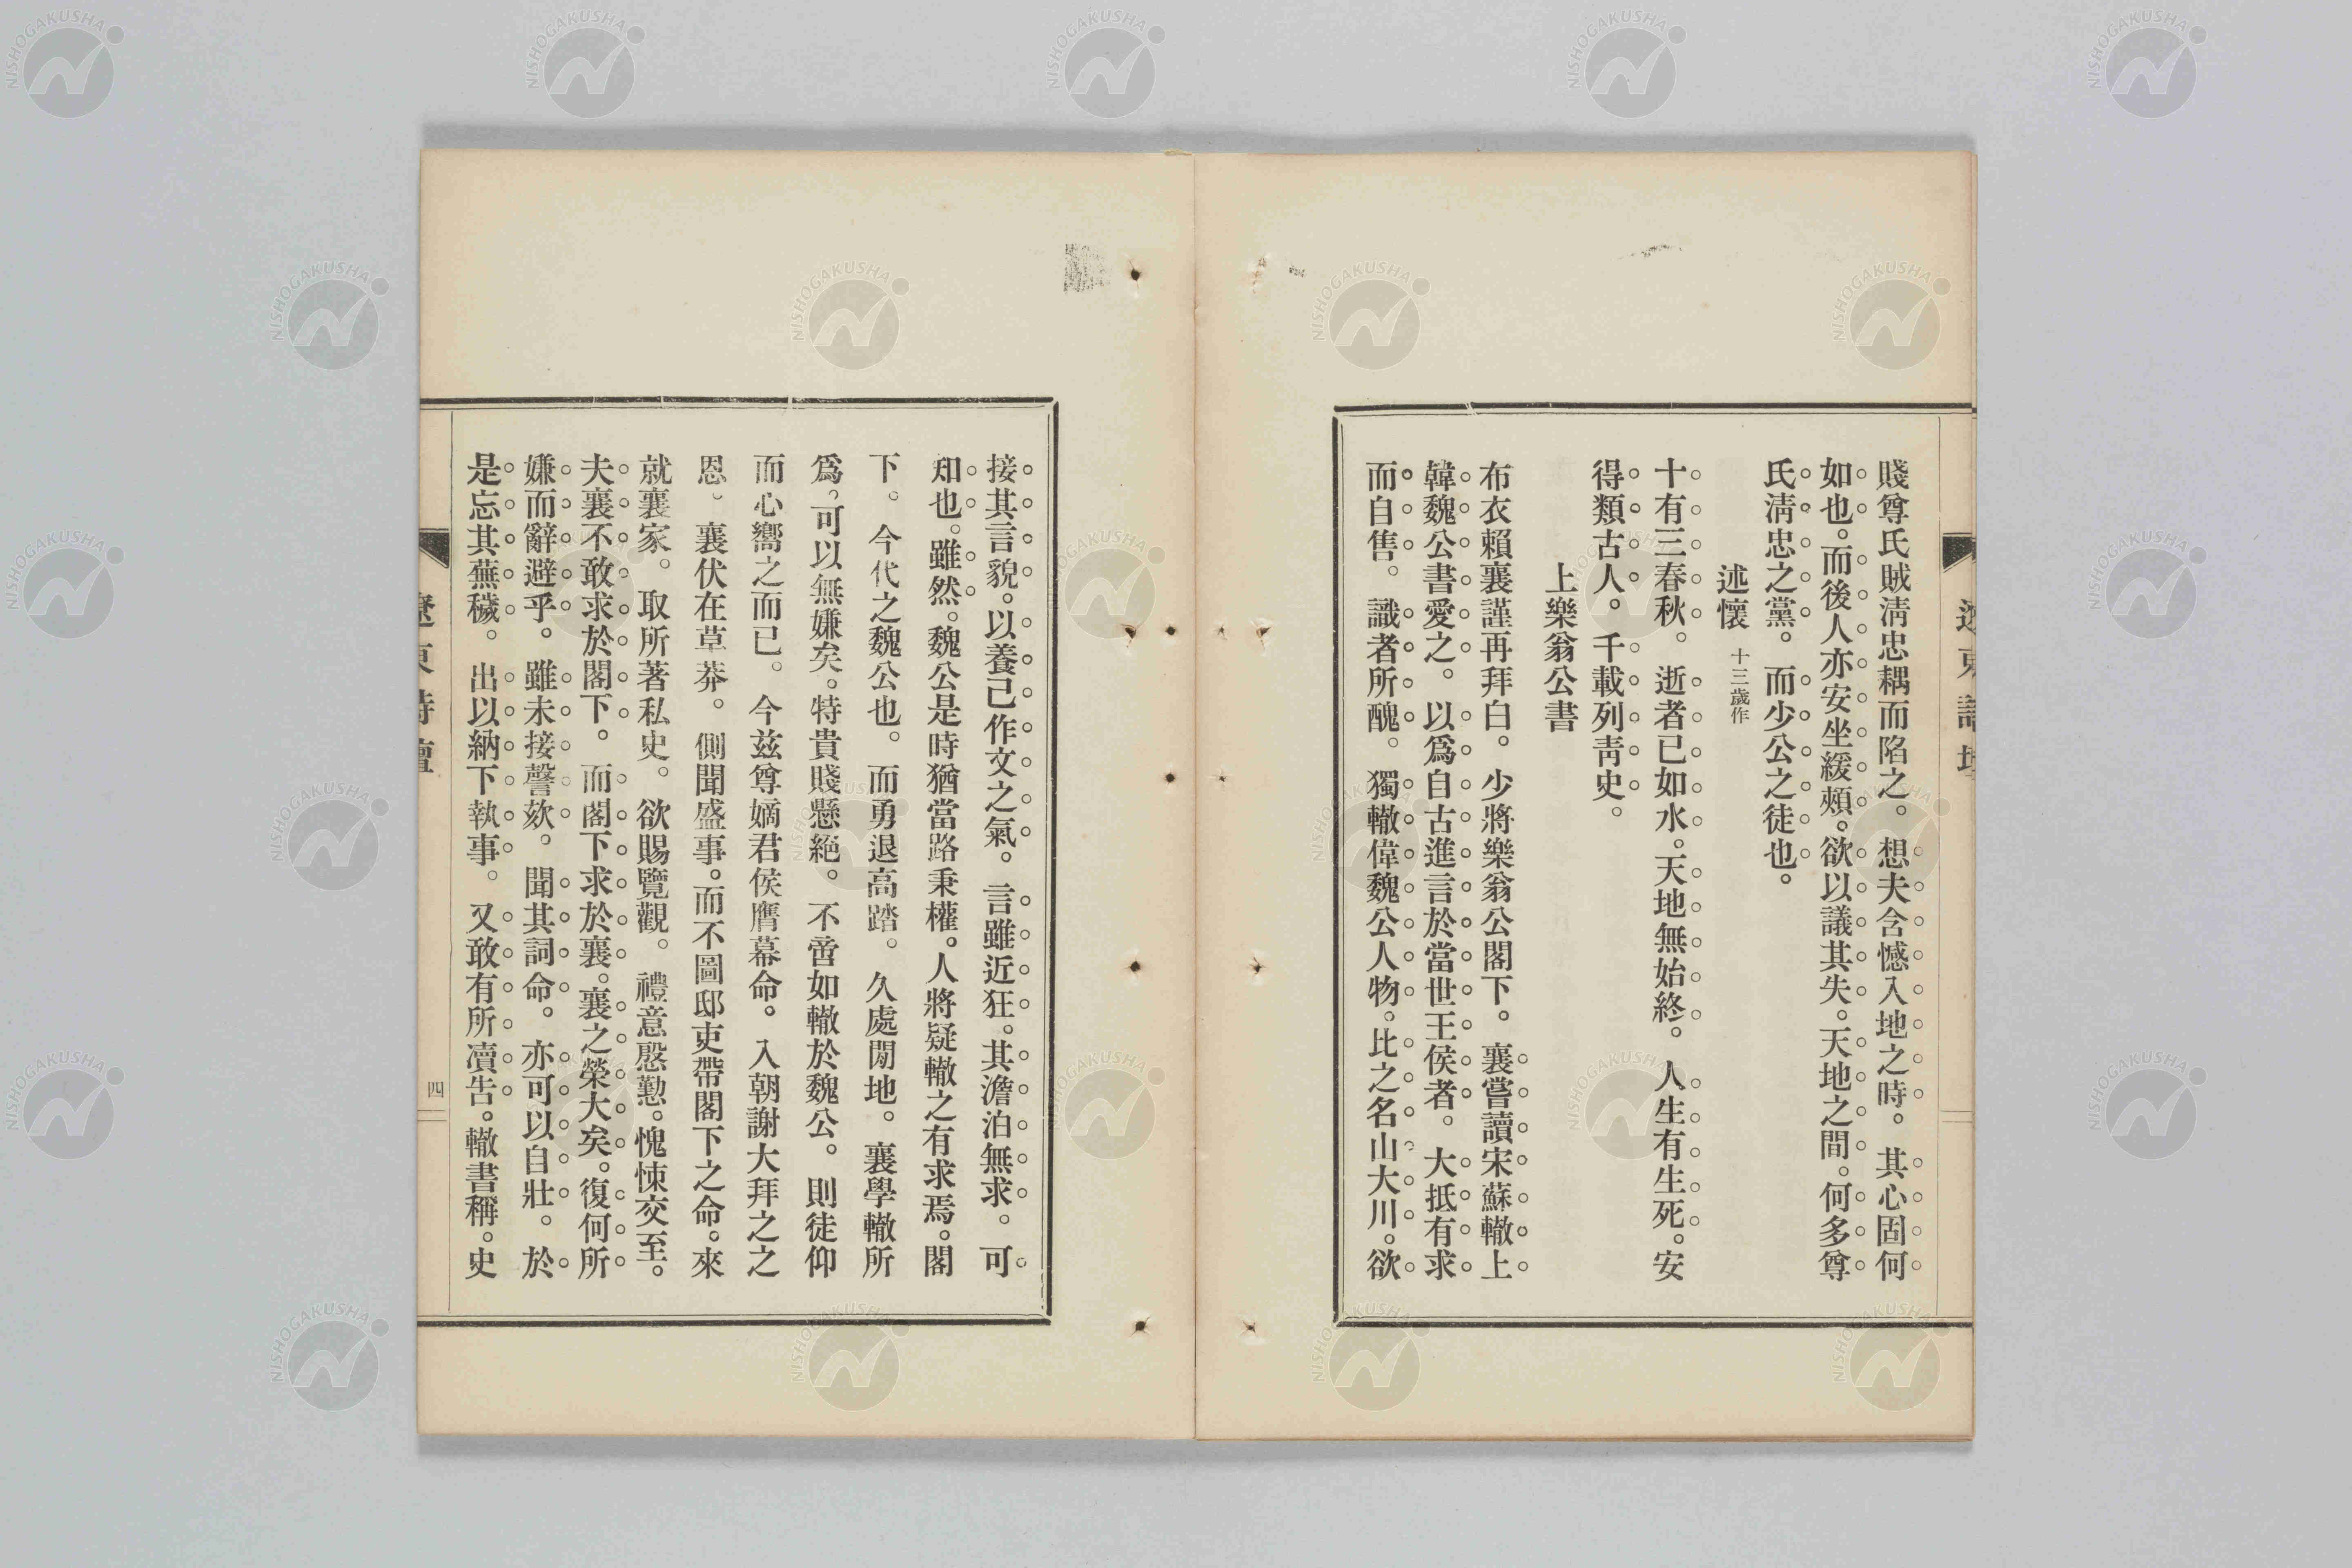 賤尊氏賊淸忠耦而陷之。想夫含憾入地之時。其心固何
如也。而後人亦安坐緩頰。欲以議其失。天地之間。何多尊
氏淸忠之黨。而少公之徒也。
述懷 十三歲作
十有三春秋。逝者已如水。天地無始終。人生有生死。安
得類古人。千載列靑史。
上樂翁公書
布衣賴襄謹再拜白。少將樂翁公閣下。襄嘗讀宋蘇轍上
韓魏公書愛之。以爲自古進言於當世王侯者。大抵有求
而自售。識者所醜。獨轍偉魏公人物。比之名山大川。欲
接其言貌。以養己作文之氣。言雖近狂。其澹泊無求。可
知也。雖然。魏公是時猶當路秉權。人將疑轍之有求焉。閣
下。今代之魏公也。而勇退高踏。久處閒地。襄學轍所
爲。可以無嫌矣。特貴賤懸絕。不啻如轍於魏公。則徒仰
而心嚮之而已。今茲尊嫡君侯膺幕命。入朝謝大拜之之
恩。襄伏在草莽。側聞盛事。而不圖邸吏帶閣下之命。來
就襄家。取所著私史。欲賜覽觀。禮意慇懃。愧悚交至。
夫襄不敢求於閣下。而閣下求於襄。襄之榮大矣。復何所
嫌而辭避乎。雖未接謦欬。聞其詞命。亦可以自壯。於
是忘其蕪穢。出以納下執事。又敢有所凟告。轍書稱。史
四
NISHOGAKUSHA